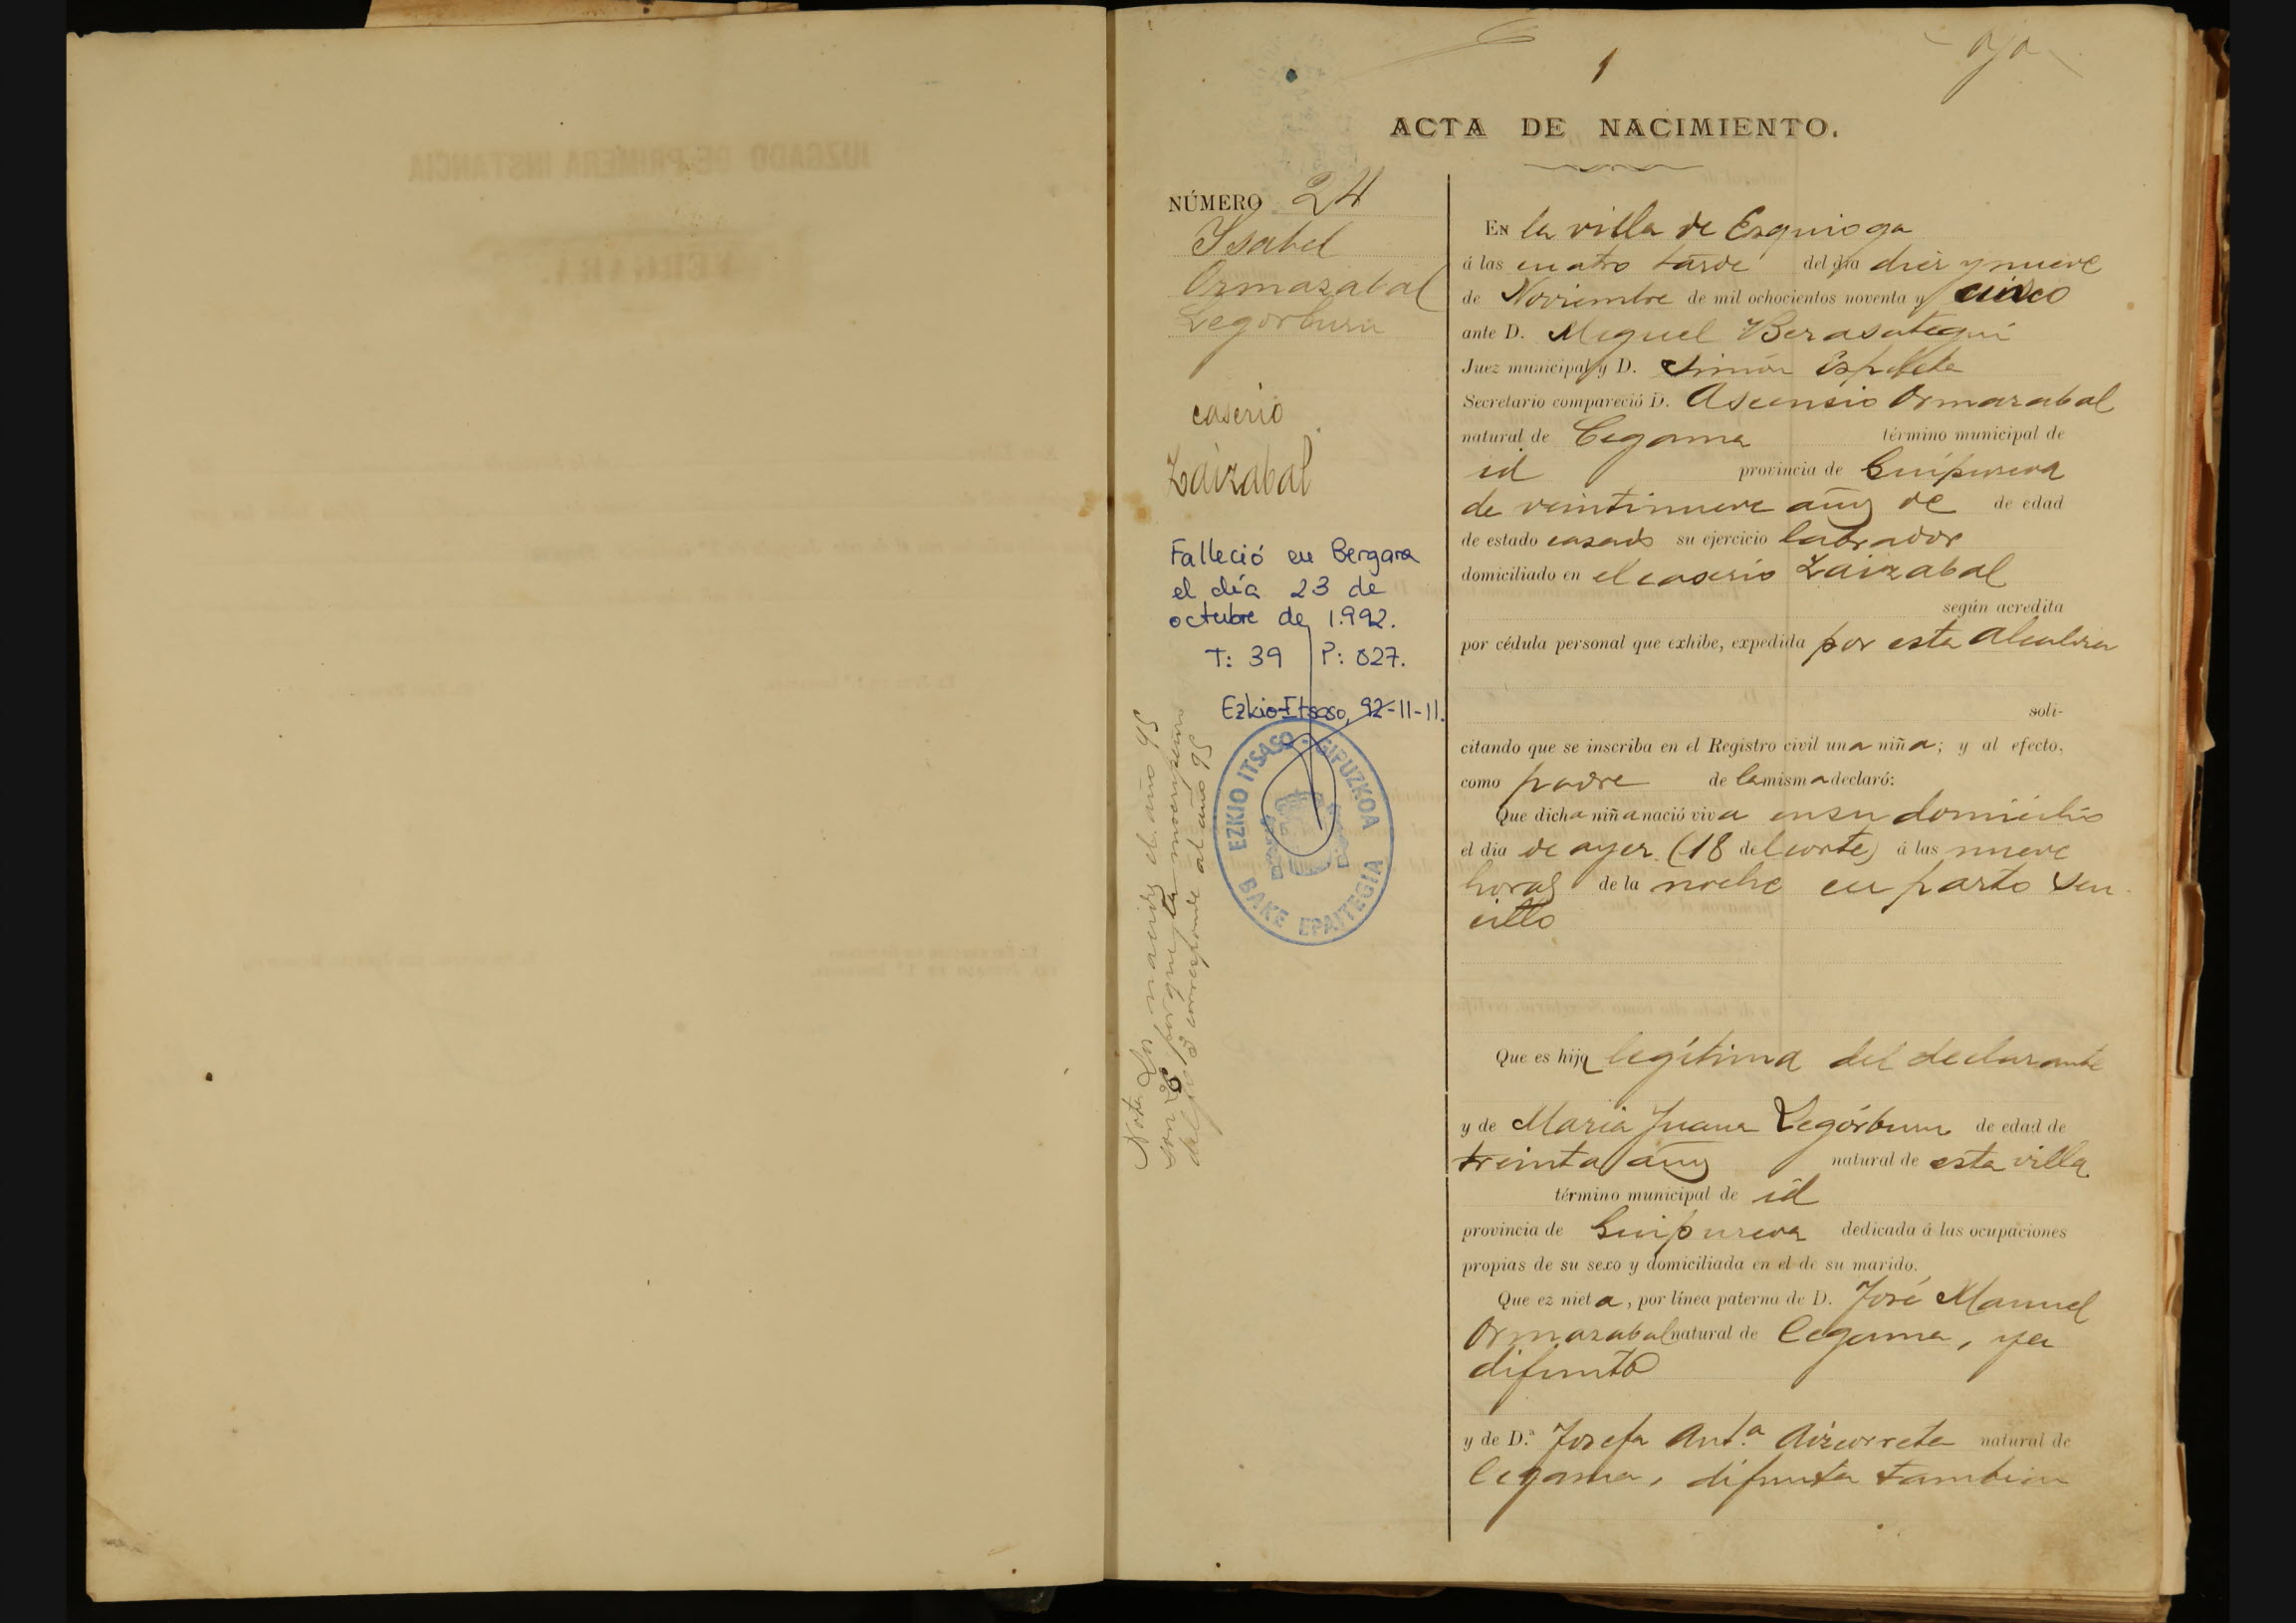 1
ACTA DE NACIMIENTO.
NÚMERO 24
Ysabel
Ormazabal
Legorburu
caserio
Zaizabal
Falleció en Bergara
el día 23 de
octubre de 1.992.
T: 39 P: 027.
Ezkio-Itsaso, 92-11-11.
EZKIO ITSASO - GIPUZKOA
BAKE EPAITEGIA
Nota Los nacidos el año 95
son 26 porque la
del fo 2 corresponde al año 95
EN la villa de Ezquioga
á las cuatro tarde del dia diez y nueve
de Noviembre de mil ochocientos noventa y cinco
ante D. Miguel Berasategui
Juez municipal y D. Simón Espelete
Secretario compareció D. Ascensio Ormazabal
natural de Cegama término municipal de
id provincia de Guipuzcoa
de veintinueve años de de edad
de estado casado su ejercicio labrador
domiciliado en el caserio Zaizabal
según acredita
por cédula personal que exhibe, expedida por esta Alcaldia
soli-
citando que se inscriba en el Registro civil una niña; y al efecto,
como padre de la misma declaró:
Que dicha niña nació viva en su domicilio
el dia de ayer (18 del corte) á las nueve
horas de la noche en parto sen-
cillo
Que es hija legítima del declarante
y de Maria Juana Legórburu de edad de
treinta años natural de esta villa
término municipal de id
provincia de Guipuzcoa dedicada á las ocupaciones
propias de su sexo y domiciliada en el de su marido.
Que ez nieta, por línea paterna de D. José Manuel
Ormazabal natural de Cegama, ya
difunto
y de D.ª Josefa Ant.ª Aizcorreta natural de
Cegama, difunta tambien